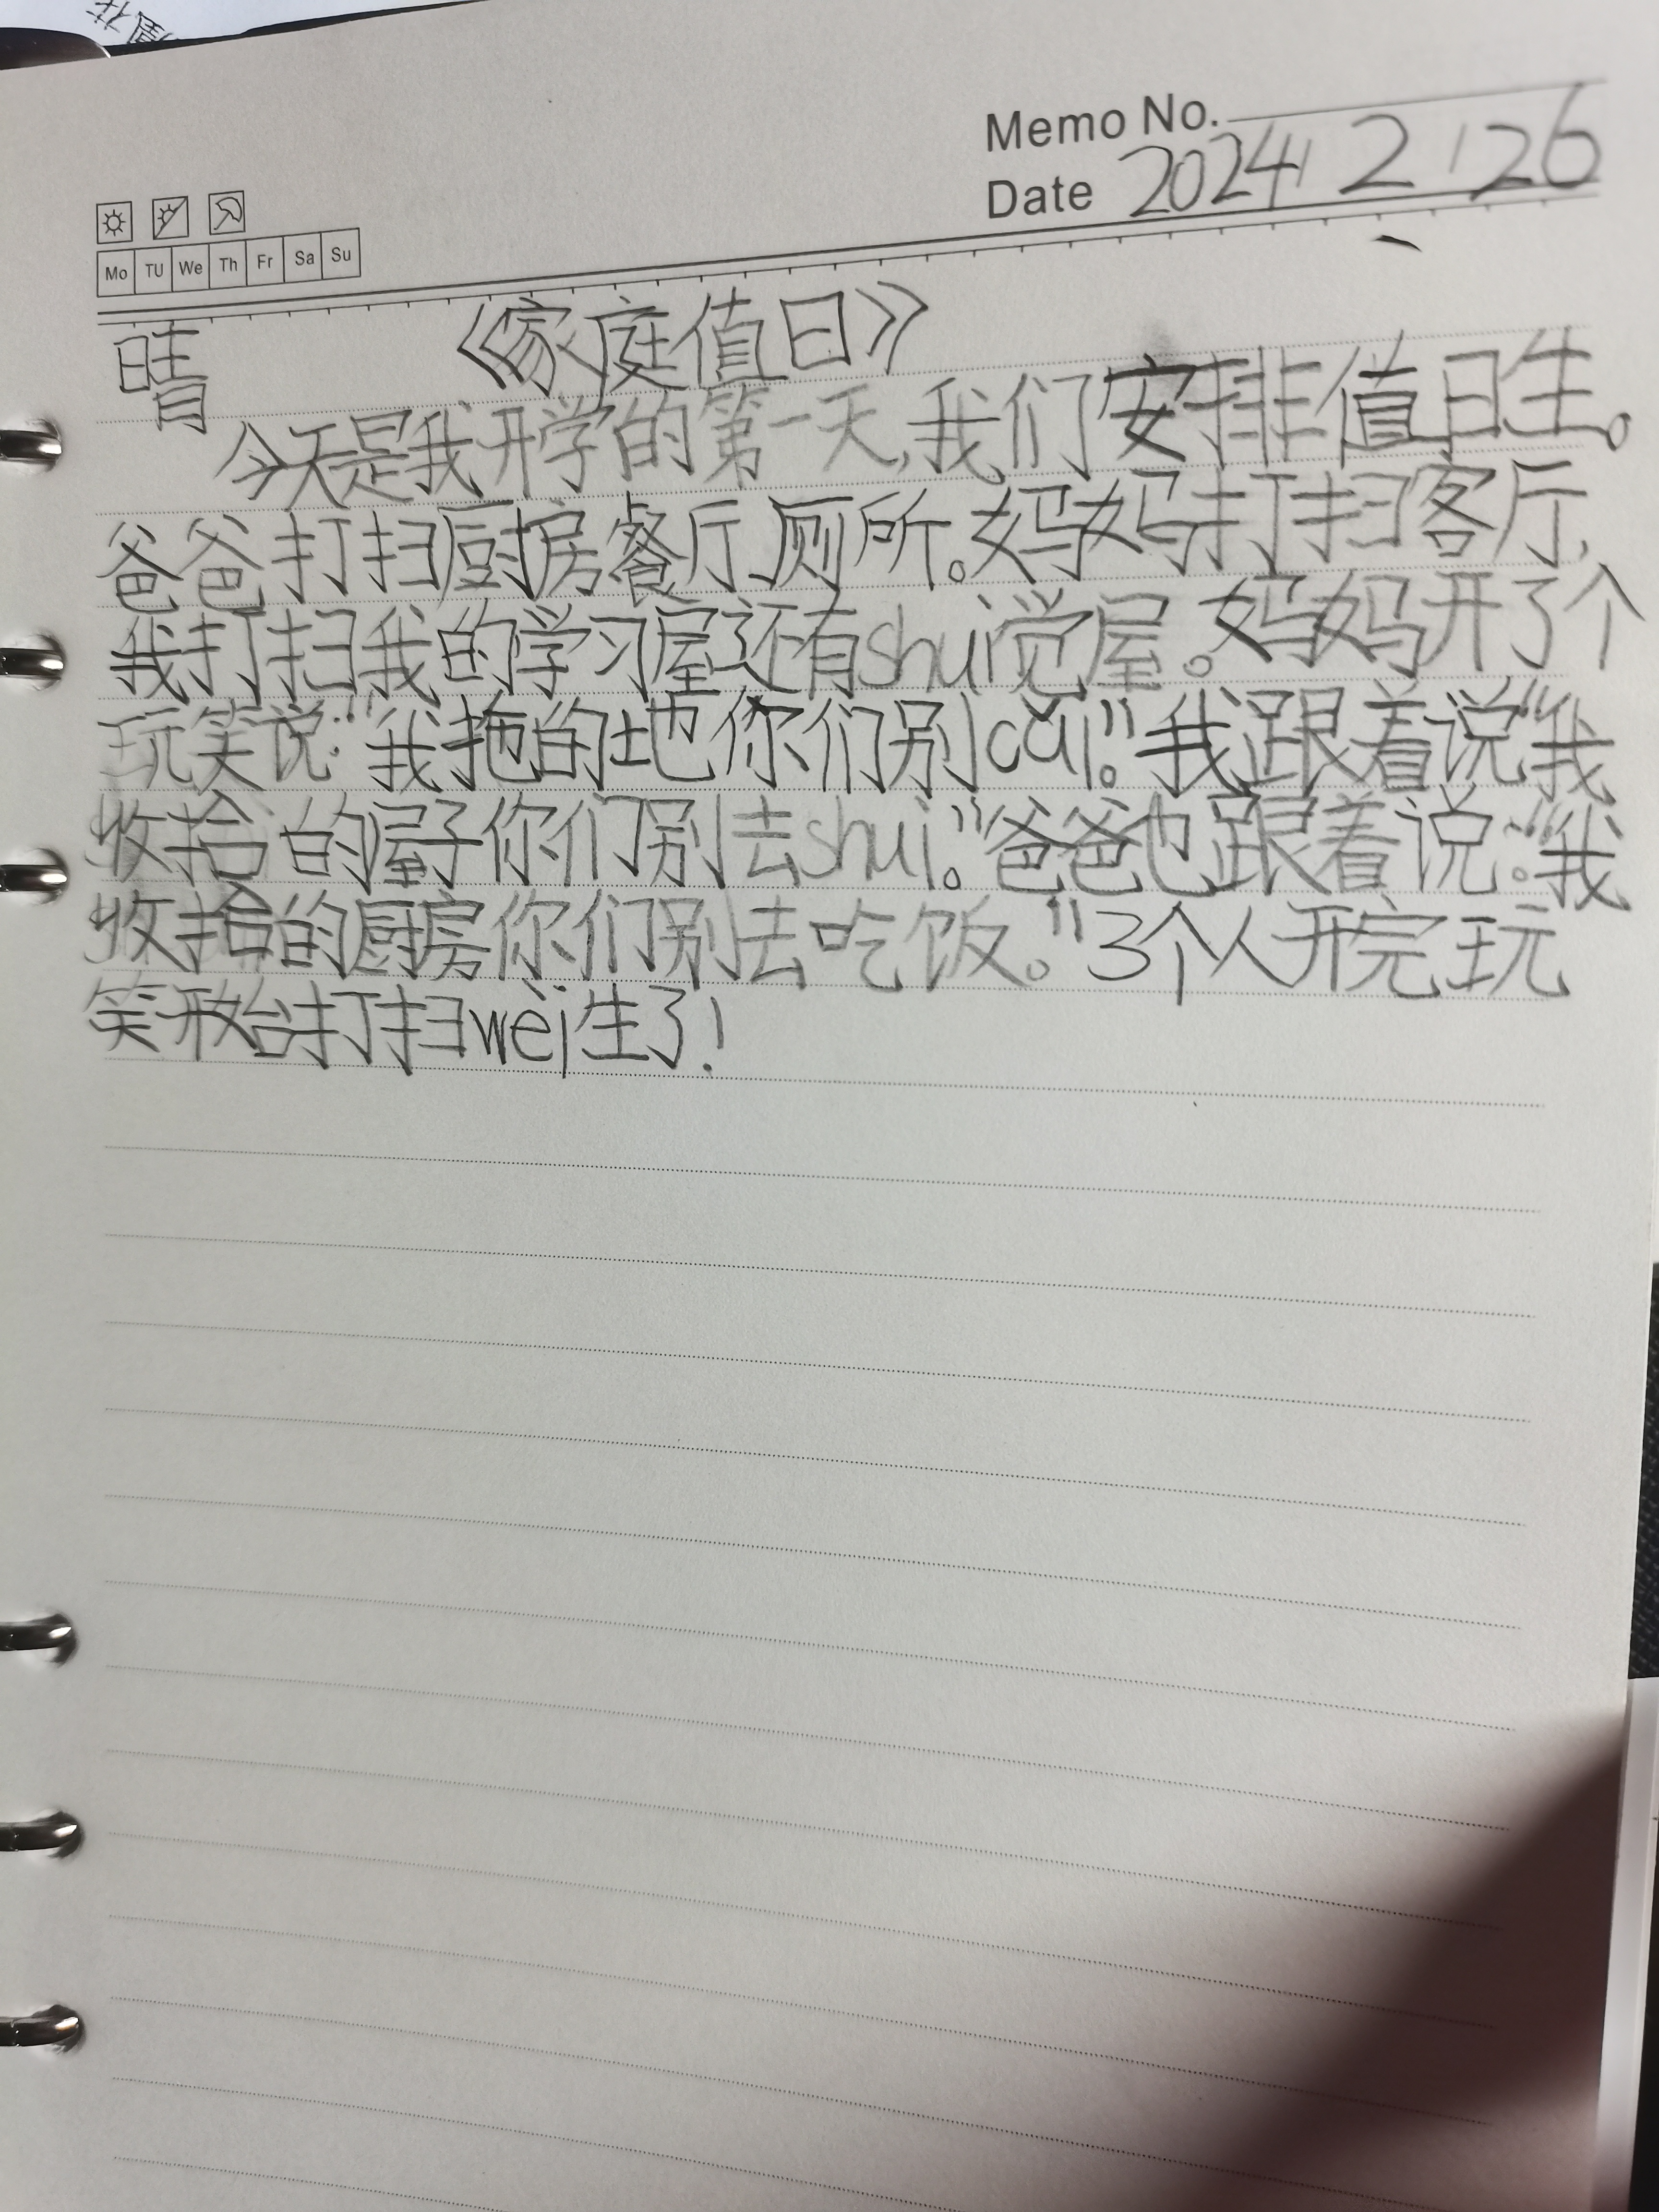 Memo No.
Date 2024 2 26
Mo TU We Th Fr Sa Su
晴 《家庭值日》
今天是我开学的第一天,我们安排值日生。
爸爸打扫厨房餐厅、厕所。妈妈打扫客厅,
我打扫我的学习屋还有shuì觉屋。妈妈开了个
玩笑说:“我拖的地你们别cǎi。”我跟着说“我
收拾的屋子你们别去shuì。”爸爸也跟着说:“我
收拾的厨房你们别去吃饭。”3个人开完玩
笑开始打扫wèi生了!